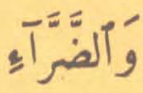 وَٱلضَّرَّآءِ